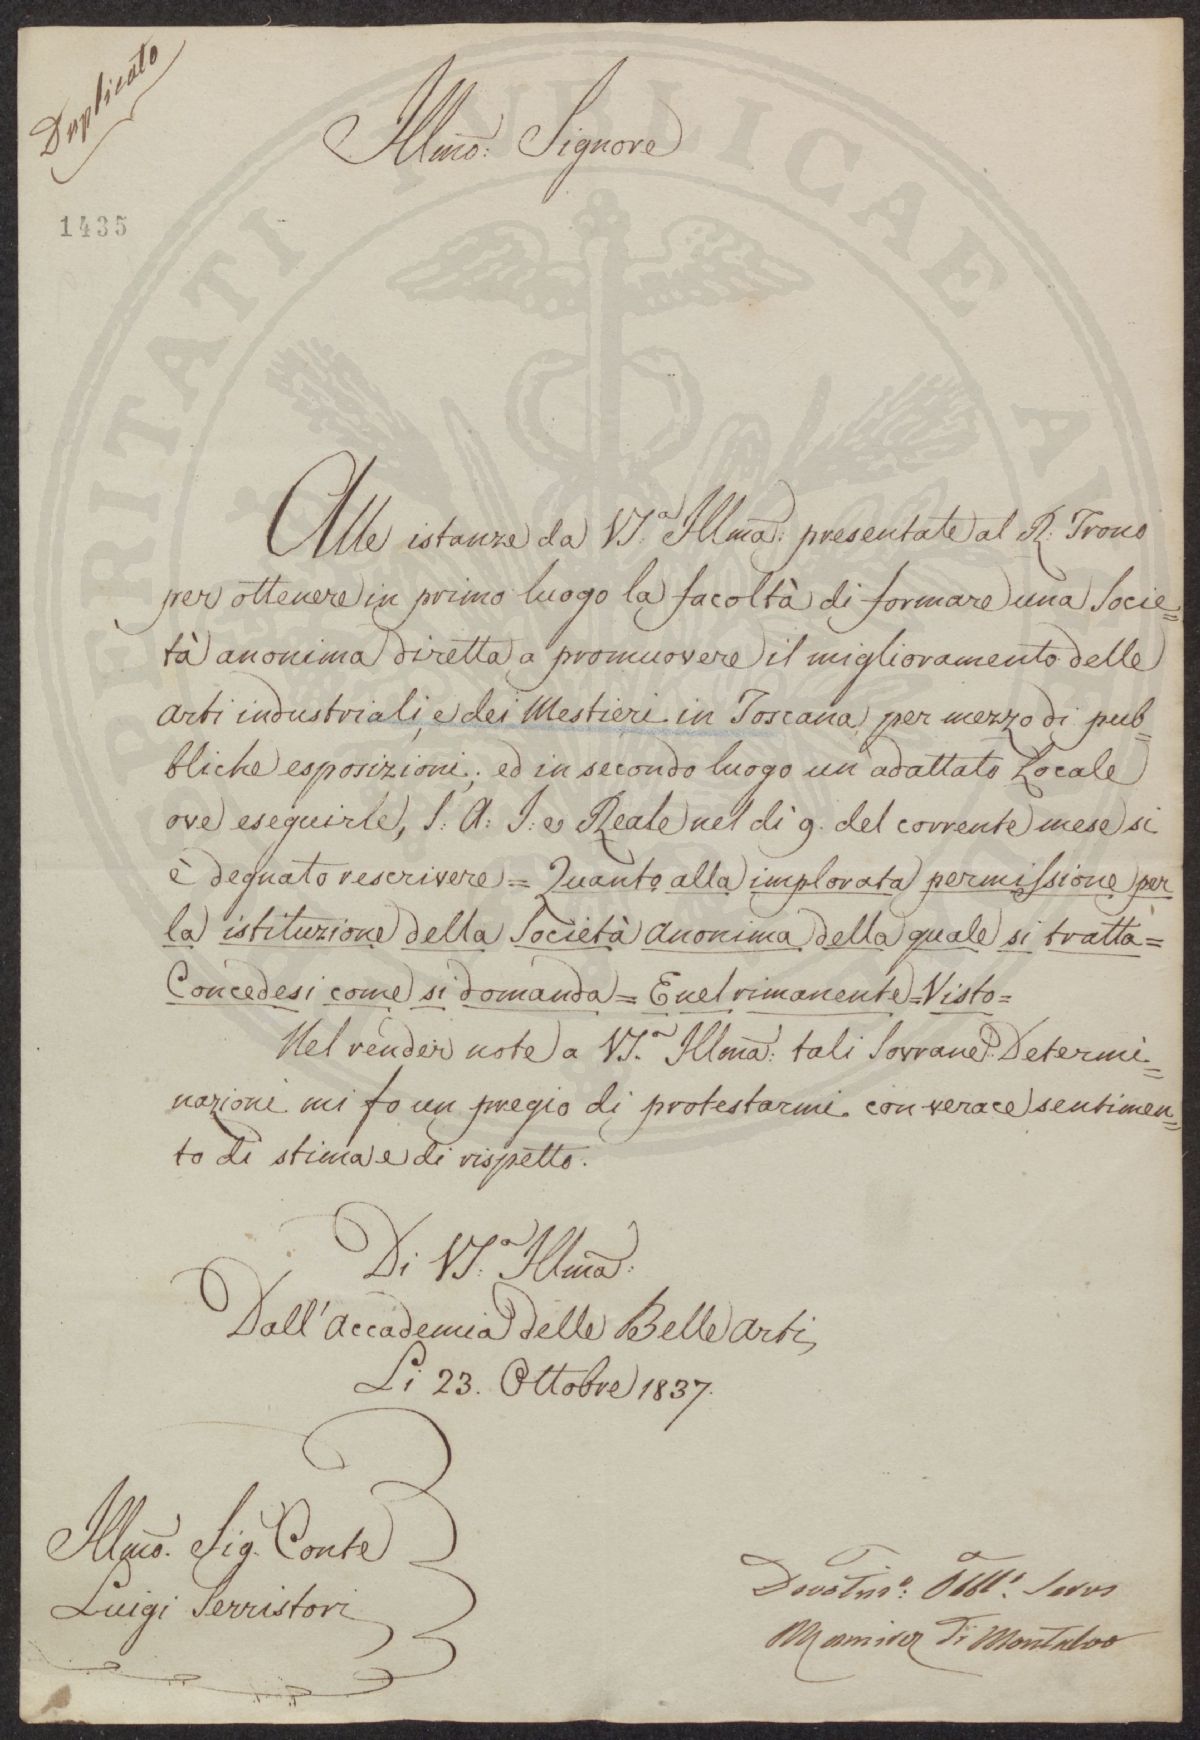 Duplicato
Illmo: Signore
1435
Alle istanze da VS.a Illma: presentate al R: Trono
per ottenere in primo luogo la facoltà di formare una Socie=
tà anonima diretta a promuovere il miglioramento delle
arti industriali, e dei Mestieri in Toscana, per mezzo di pub=
bliche esposizioni; ed in secondo luogo un adattato Locale
ove eseguirle, S: A: I: e Reale nel dì 9. del corrente mese si
è degnato rescrivere = Quanto alla implorata permissione per
la istituzione della Società anonima della quale si tratta =
Concedesi come si domanda = E nel rimanente = Visto =
Nel render note a VS.a Illma: tali Sovrane Determi=
nazioni mi fo un pregio di protestarmi con verace sentimen=
to di stima e di rispetto.
Di VS.a Illma:
Dall'Accademia delle Belle Arti
Li 23. Ottobre 1837.
Illmo. Sig. Conte
Luigi Serristori
Devotmo: Obbl: Servo
Ramirez Di Montalvo
PROSPERITATI PUBLICAE AU